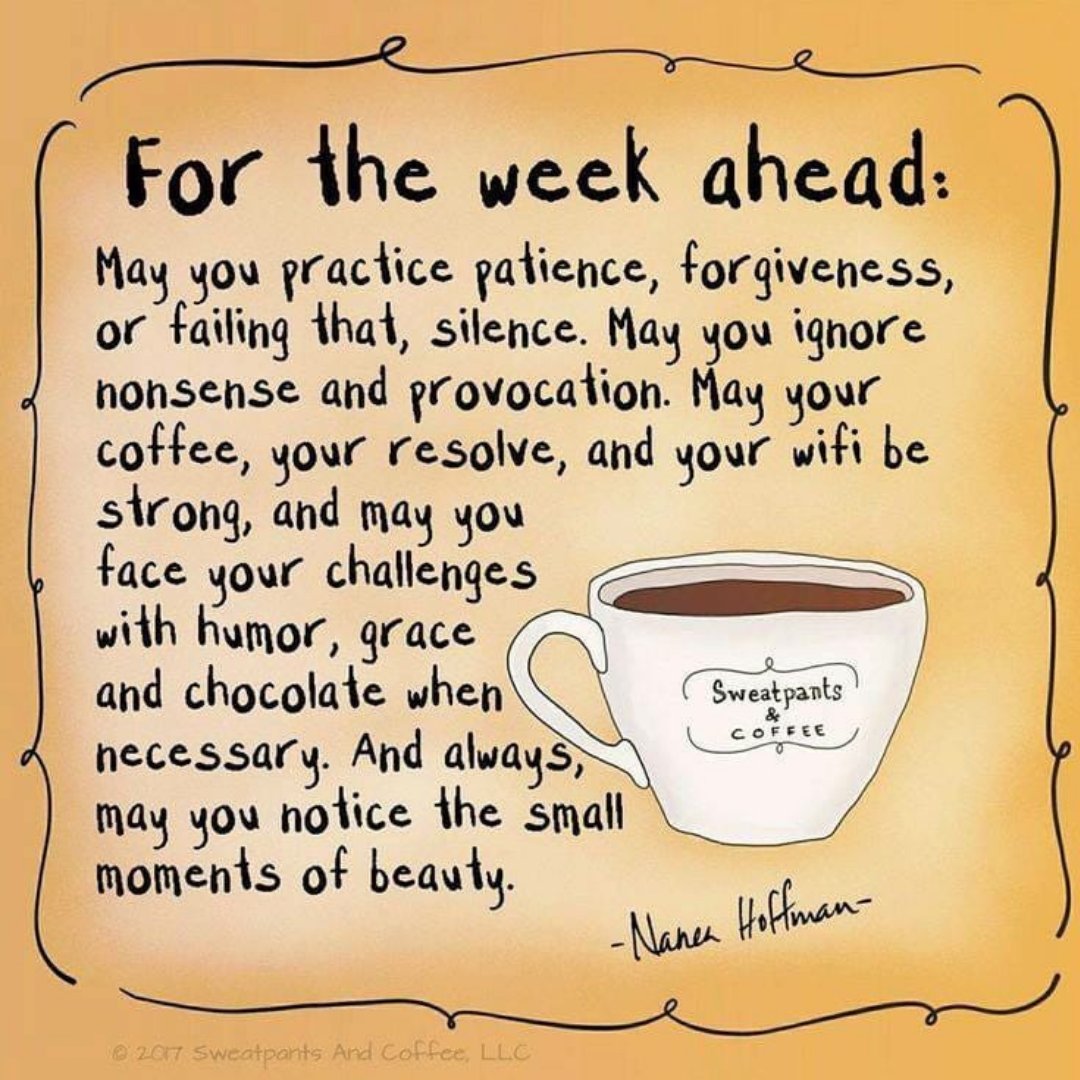 For the week ahead:
May you practice patience, forgiveness,
or failing that, silence. May you ignore
nonsense and provocation. May your
coffee, your resolve, and your wifi be
strong, and may you
face your challenges
with humor, grace
and chocolate when
necessary. And always,
may you notice the small
moments of beauty.
Sweatpants
&
COFFEE
-Nanea Hoffman-
© 2017 Sweatpants And Coffee, LLC